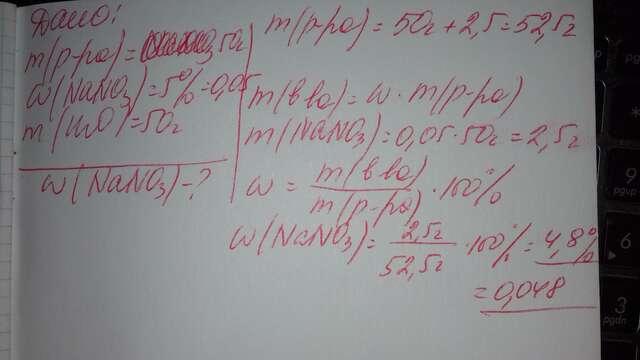 Дано:
m(р-ра) = 50г
ω(NaNO3)=5%=0,05
m(H2O)=50г
ω(NaNO3)-?
m(р-ра) = 50г + 2,5 = 52,5г
m(в ва) = ω · m(р-ра)
m(NaNO3) = 0,05·50г = 2,5г
ω = m(в ва) / m(р-ра) · 100%
ω(NaNO3) = 2,5г / 52,5г · 100% = 4,8%
= 0,048
9
pgup
6
3
pgdn